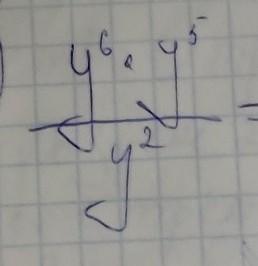 y⁶ · y⁵
y² =